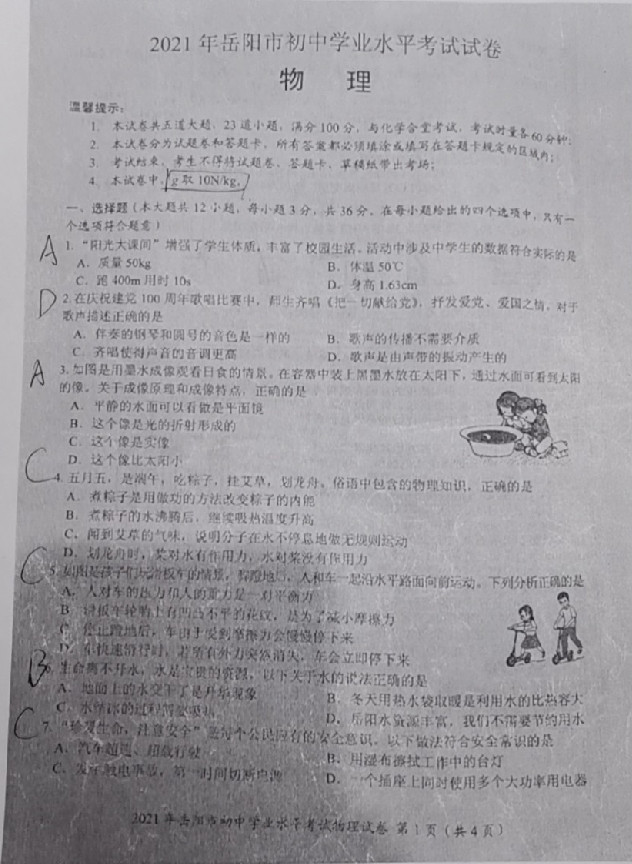 2021年岳阳市初中学业水平考试试卷
物 理
温馨提示:
1. 本试卷共五道大题,23道小题,满分100分,与化学合堂考试,考试时量各60分钟;
2. 本试卷分为试题卷和答题卡,所有答案都必须填涂或填写在答题卡规定的区域内;
3. 考试结束,考生不得将试题卷、答题卡、草稿纸带出考场;
4. 本试卷中,g取10N/kg。
一、选择题(本大题共12小题,每小题3分,共36分。在每小题给出的四个选项中,只有一
个选项符合题意)
A 1. “阳光大课间”增强了学生体质,丰富了校园生活。活动中涉及中学生的数据符合实际的是
A. 质量50kg B. 体温50℃
C. 跑400m用时10s D. 身高1.63cm
D 2. 在庆祝建党100周年歌唱比赛中,师生齐唱《把一切献给党》,抒发爱党、爱国之情。对于
歌声描述正确的是
A. 伴奏的钢琴和圆号的音色是一样的 B. 歌声的传播不需要介质
C. 齐唱使得声音的音调更高 D. 歌声是由声带的振动产生的
A 3. 如图是用墨水成像观看日食的情景。在容器中装上黑墨水放在太阳下,通过水面可看到太阳
的像。关于成像原理和成像特点,正确的是
A. 平静的水面可以看做是平面镜
B. 这个像是光的折射形成的
C. 这个像是实像
D. 这个像比太阳小
C 4. 五月五,是端午,吃粽子,挂艾草,划龙舟。俗语中包含的物理知识,正确的是
A. 煮粽子是用做功的方法改变粽子的内能
B. 煮粽子的水沸腾后,继续吸热温度升高
C. 闻到艾草的气味,说明分子在永不停息地做无规则运动
D. 划龙舟时,桨对水有作用力,水对桨没有作用力
C 5. 如图是孩子们玩滑板车的情景,脚蹬地后,人和车一起沿水平路面向前运动。下列分析正确的是
A. 人对车的压力和人的重力是一对平衡力
B. 滑板车轮胎上有凹凸不平的花纹,是为了减小摩擦力
C. 停止蹬地后,车由于受到摩擦力会慢慢停下来
D. 车快速滑行时,若所有外力突然消失,车会立即停下来
B 6. 生命离不开水,水是宝贵的资源,以下关于水的说法正确的是
A. 地面上的水变干了是升华现象 B. 冬天用热水袋取暖是利用水的比热容大
C. 水结冰的过程需要吸热 D. 岳阳水资源丰富,我们不需要节约用水
C 7. “珍爱生命,注意安全”是每个公民应有的安全意识。以下做法符合安全常识的是
A. 汽车超速、超载行驶 B. 用湿布擦拭工作中的台灯
C. 发生触电事故,第一时间切断电源 D. 一个插座上同时使用多个大功率用电器
2021年岳阳市初中学业水平考试物理试卷 第1页(共4页)